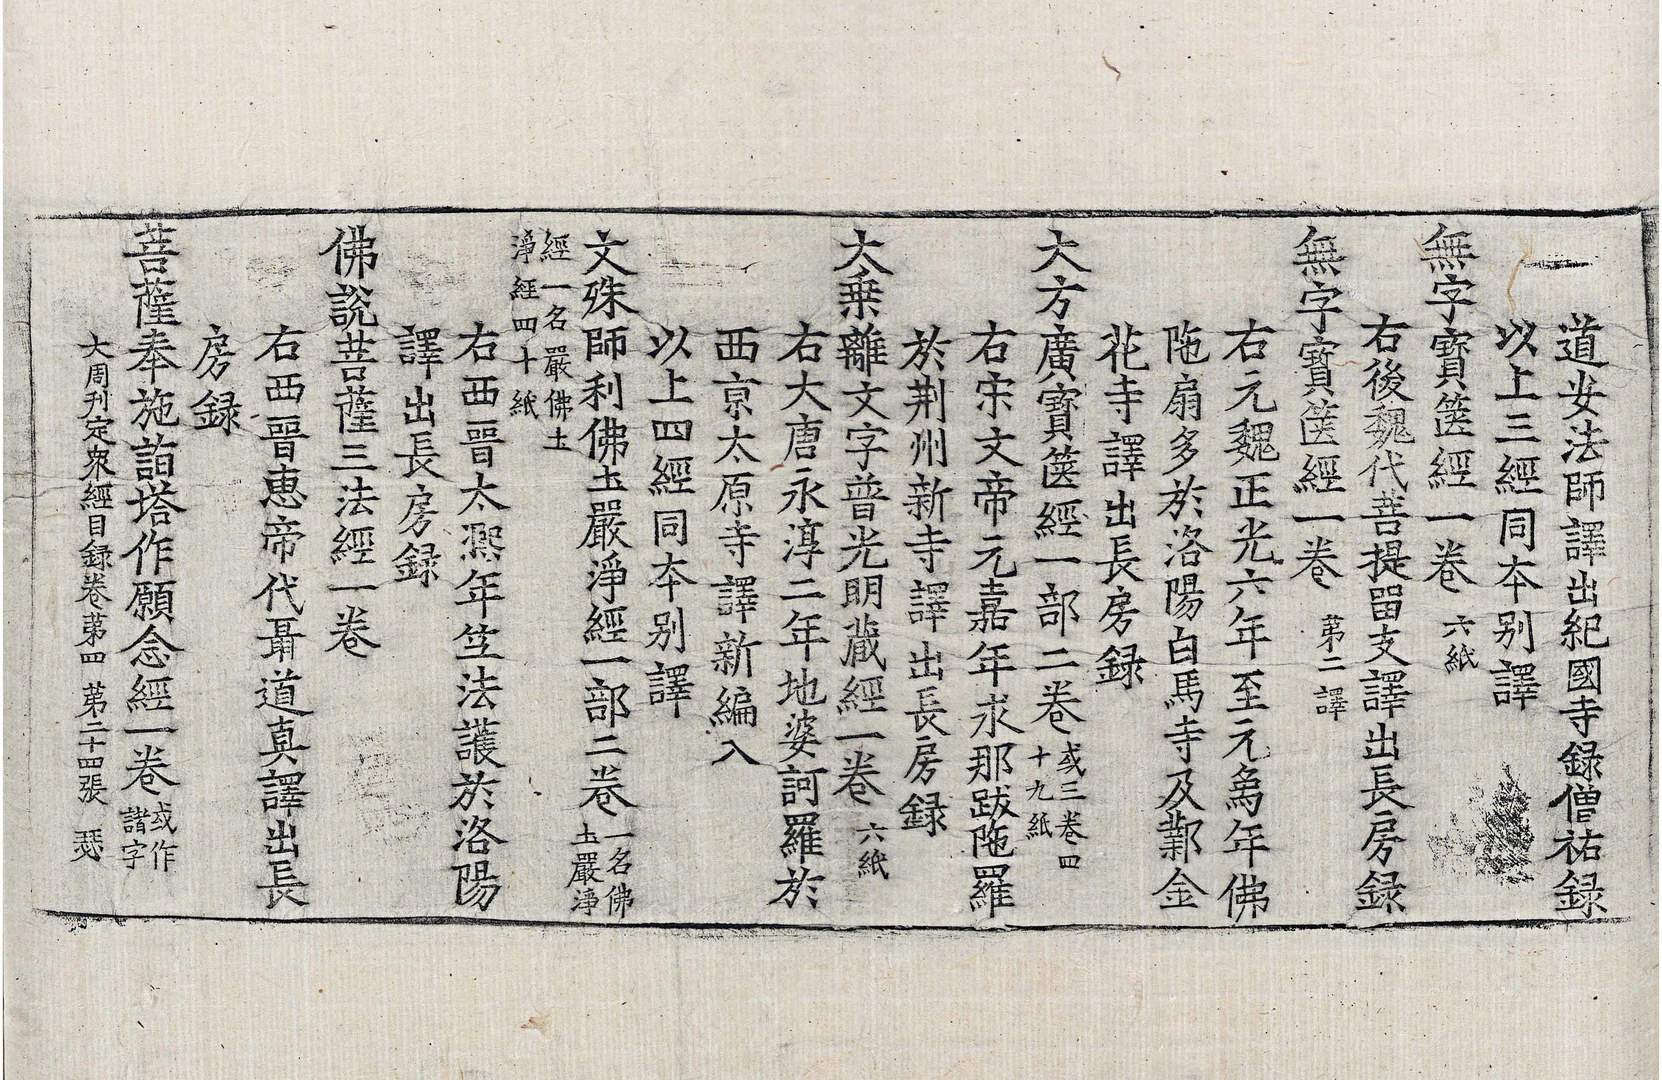 道安法師譯出紀國寺録僧祐録
以上三經同夲別譯
無字寶篋經一卷 六紙
右後魏代菩提留支譯出長房録
無字寶篋經一卷 苐二譯
右元魏正光六年至元象年佛
陁扇多於洛陽白馬寺及鄴金
花寺譯出長房録
大方廣寶篋經一部二卷 或三卷四十九紙
右宋文帝元嘉年求那跋陁羅
於荆州新寺譯出長房録
大乗離文字普光明蔵經一卷 六紙
右大唐永淳二年地婆訶羅於
西京太原寺譯新編入
以上四經同夲別譯
文殊師利佛圡嚴淨經一部二卷 一名佛圡嚴淨
經一名嚴佛圡淨經四十紙
右西晋太熙年竺法護於洛陽
譯出長房録
佛說菩薩三法經一卷
右西晋惠帝代聶道真譯出長
房録
菩薩奉施詣塔作願念經一卷 或作諸字
大周刋定衆經目録卷苐四 苐二十四張 瑟